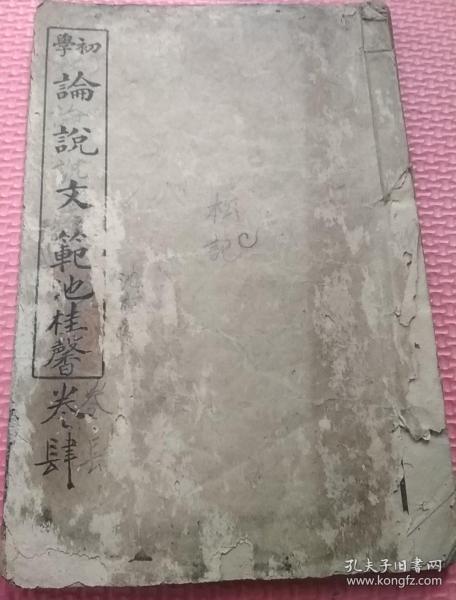 初學
論說文範池桂馨
卷肆
記
孔夫子旧書网
www.kongfz.com